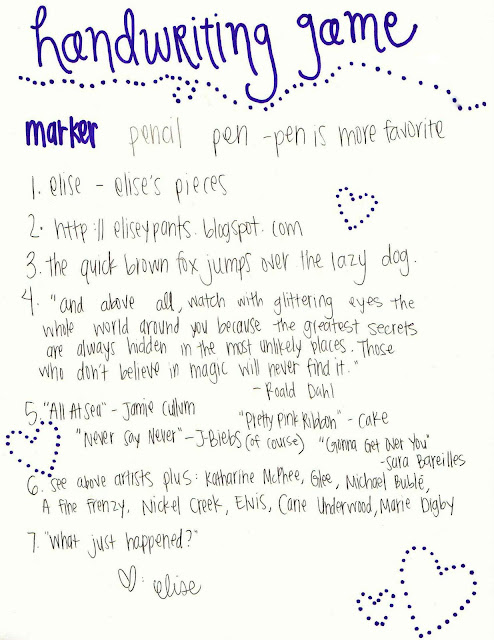 handwriting game
marker pencil pen - pen is more favorite
1. elise - elise's pieces
2. http://eliseypants.blogspot.com
3. the quick brown fox jumps over the lazy dog.
4. "and above all, watch with glittering eyes the
whole world around you because the greatest secrets
are always hidden in the most unlikely places. Those
who don't believe in magic will never find it."
- Roald Dahl
5. "All At Sea" - Jamie Cullum "Pretty Pink Ribbon" - Cake
"Never Say Never" - J-Biebs (of course) "Gonna Get Over You"
- Sara Bareilles
6. See above artists plus: Katharine McPhee, Glee, Michael Bublé,
A Fine Frenzy, Nickel Creek, Elvis, Carrie Underwood, Marie Digby
7. "What just happened?"
♡: elise